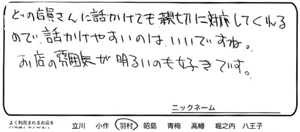 どの店員さんに話かけても親切に対応してくれる
ので、話かけやすいのは、いいですね。
お店の雰囲気が明るいのも好きです。
ニックネーム
よく利用されるお店を
立川 小作 羽村 昭島 青梅 高幡 堀之内 八王子